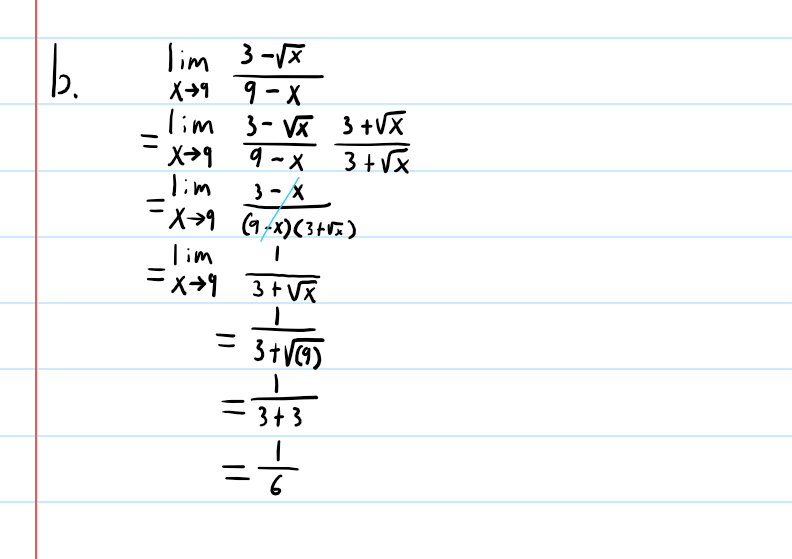 b. lim x→9 (3 - √x)/(9 - x)
= lim x→9 (3 - √x)/(9 - x) (3 + √x)/(3 + √x)
= lim x→9 (3 - x)/((9 - x)(3 + √x))
= lim x→9 1/(3 + √x)
= 1/(3 + √(9))
= 1/(3 + 3)
= 1/6